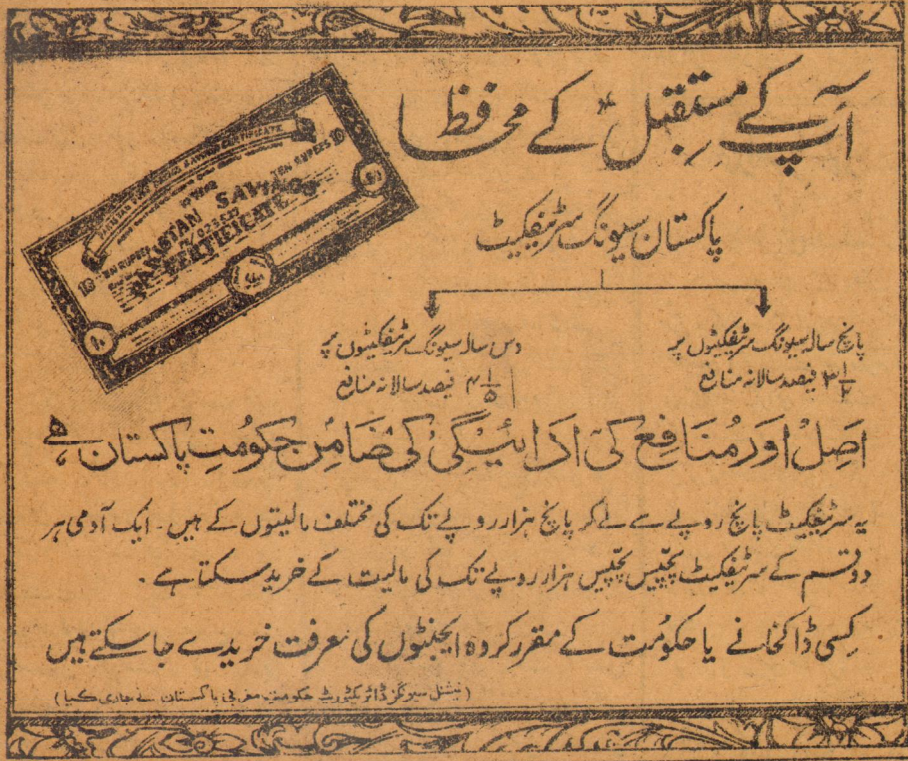 آپ کے مستقبل کے محافظ
PAKISTAN SAVINGS
CERTIFICATE
TEN RUPEES
پاکستان سیونگ سرٹیفکیٹ
پانچ سالہ سیونگ سرٹیفکیٹوں پر
۳ ۱/۲ فیصد سالانہ منافع
دس سالہ سیونگ سرٹیفکیٹوں پر
۴ ۱/۵ فیصد سالانہ منافع
اصل اور منافع کی ادائیگی کی ضامن حکومتِ پاکستان ہے
یہ سرٹیفکیٹ پانچ روپے سے لے کر پانچ ہزار روپے تک کی مختلف مالیتوں کے ہیں۔ ایک آدمی ہر
دو قسم کے سرٹیفکیٹ پچیس پچیس ہزار روپے تک کی مالیت کے خرید سکتا ہے۔
کسی ڈاکخانے یا حکومت کے مقرر کردہ ایجنٹوں کی معرفت خریدے جا سکتے ہیں
(نیشنل سیونگز ڈائریکٹوریٹ حکومت مغربی پاکستان نے جاری کیا)